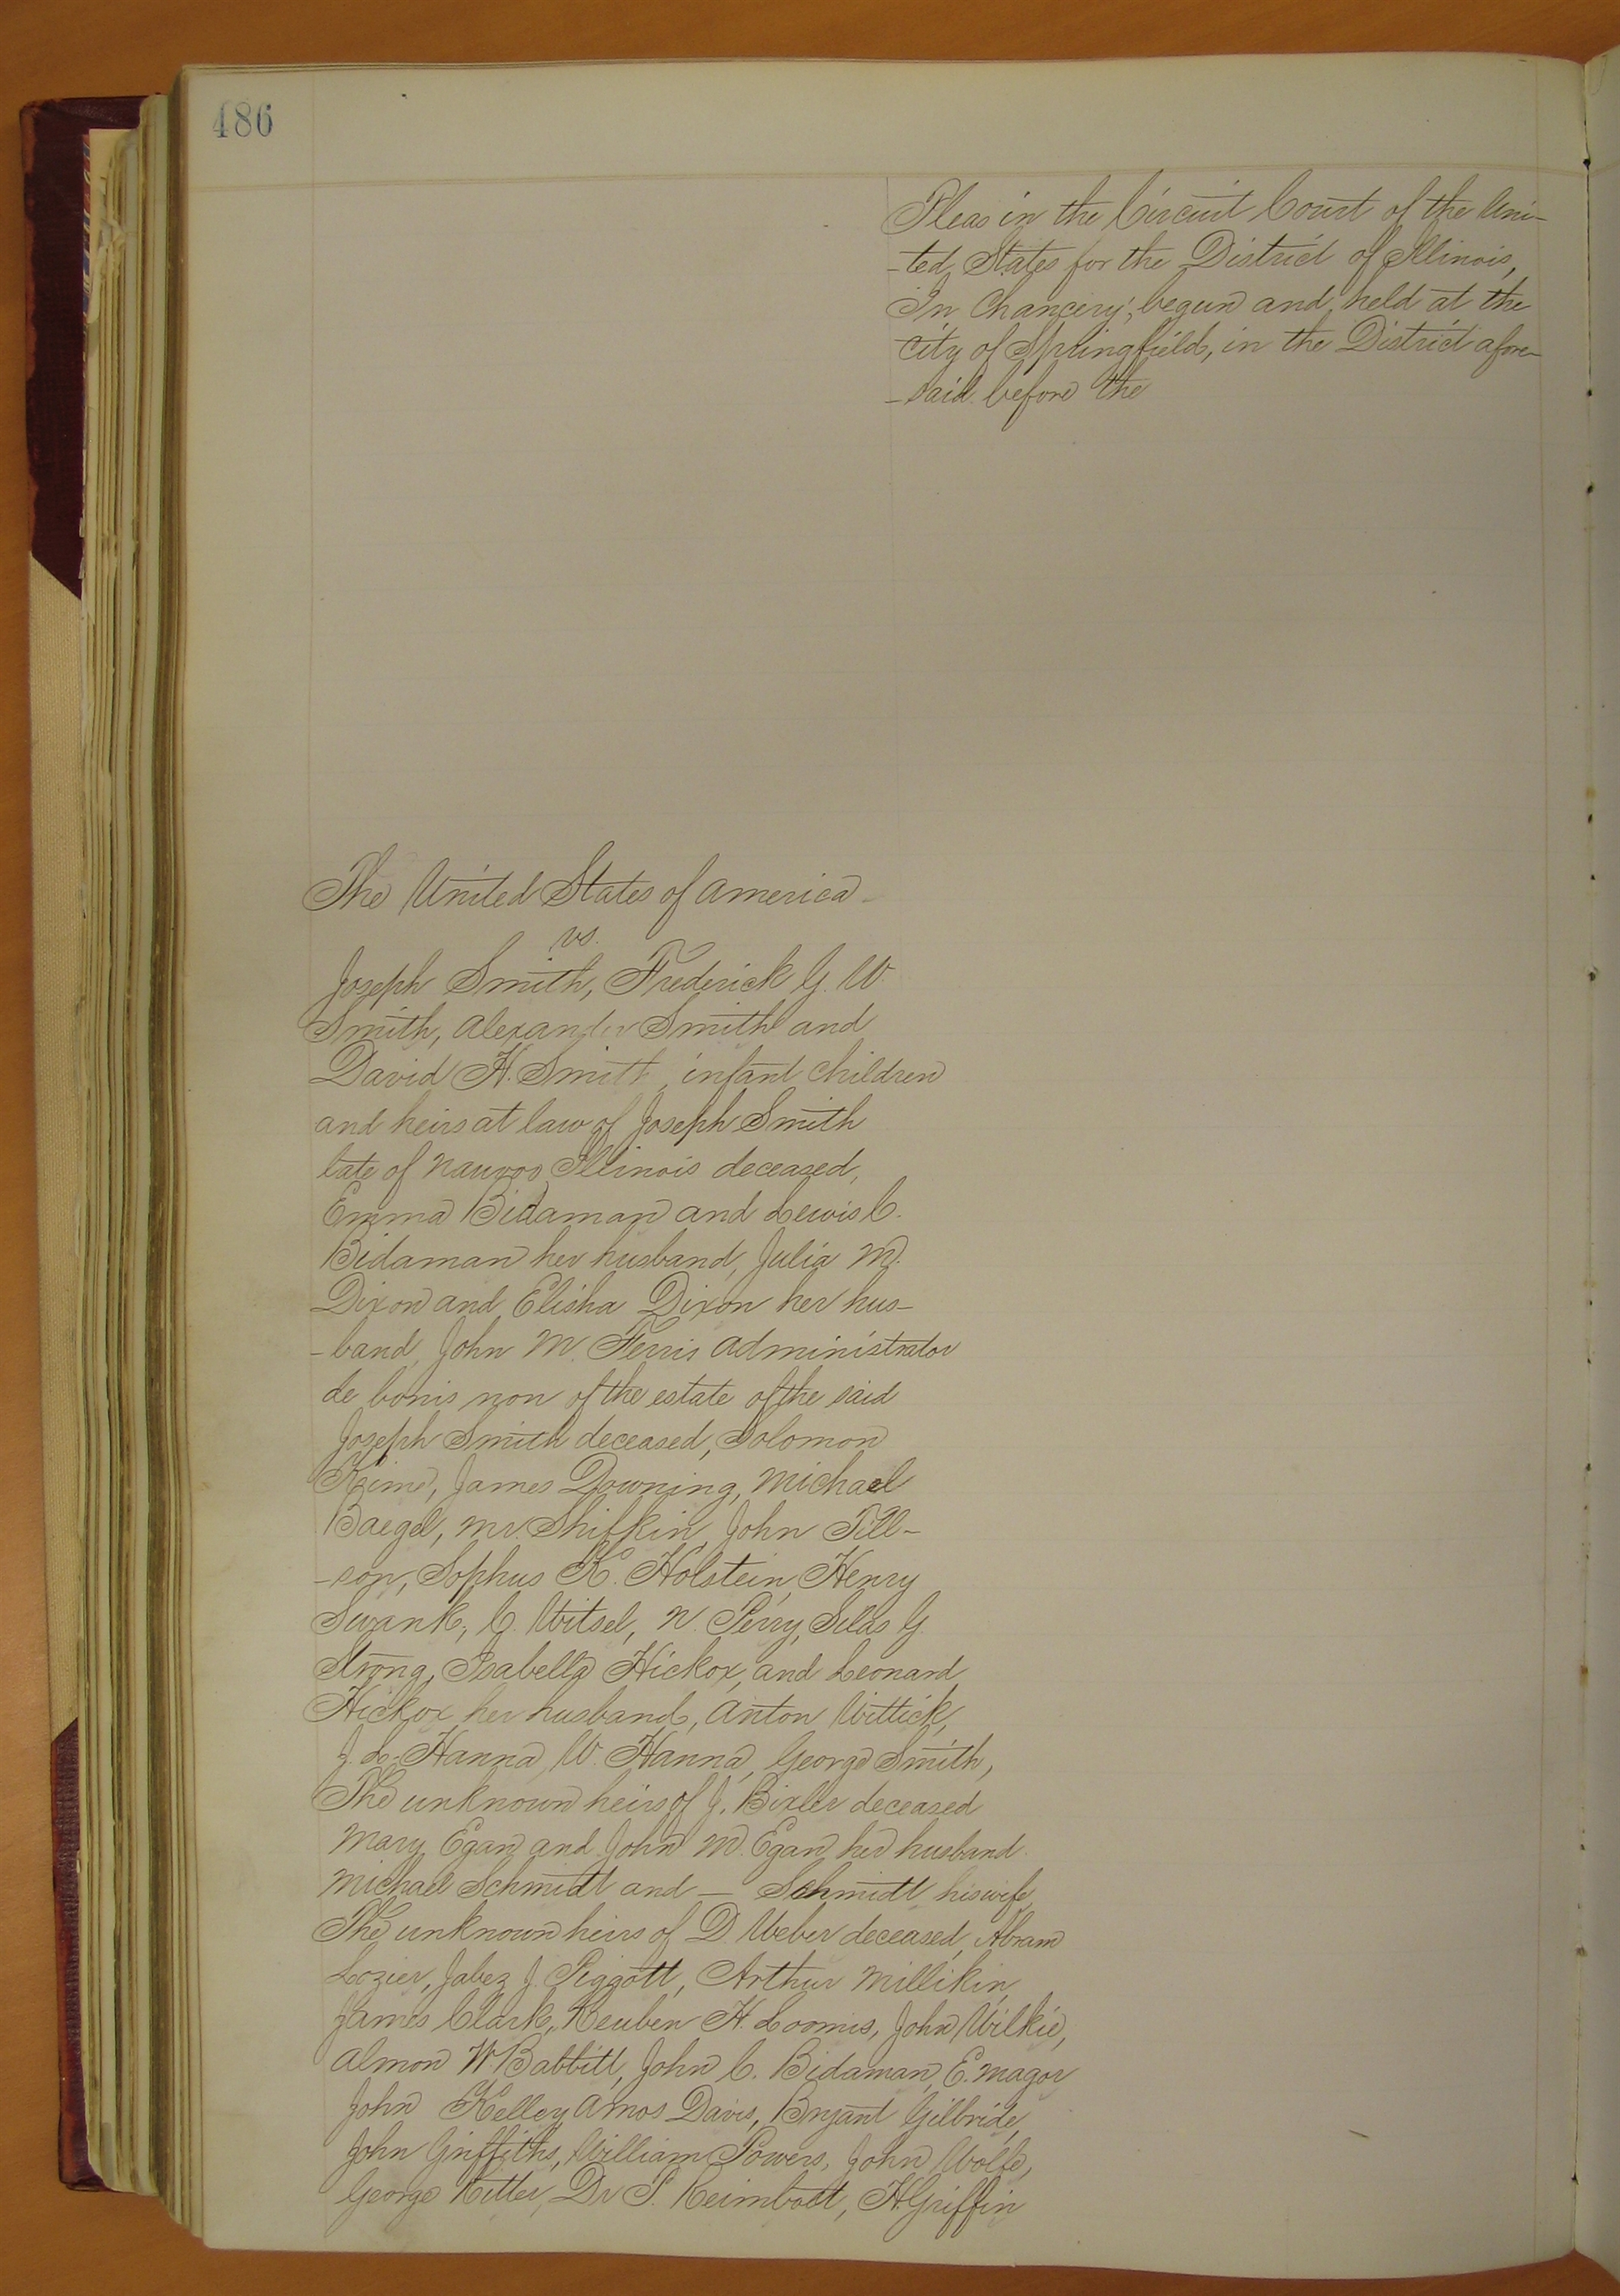 486
Pleas in the Circuit Court of the Uni-
-ted States for the District of Illinois,
In Chancery; begun and held at the
City of Springfield, in the District afore-
-said before the
The United States of America
vs.
Joseph Smith, Frederick G. W.
Smith, Alexander Smith and
David H. Smith, infant children
and heirs at law of Joseph Smith
late of Nauvoo Illinois deceased,
Emma Bidaman and Lewis C.
Bidaman her husband, Julia M.
Dixon and Elisha Dixon her hus-
-band, John M. Ferris administrator
de bonis non of the estate of the said
Joseph Smith deceased, Solomon
James Downing, Michael
Baegel, Mr. Shifkin, John Till-
-son, Sophus K. Holstein, Henry
Swank, C. Witsel, N. Perry, Silas G.
Strong, Isabella Hickox, and Leonard
Hickox her husband, Anton Wittick,
J. L. Hanna, W. Hanna, George Smith,
The unknown heirs of J. Bixler deceased
Mary Egan and John M. Egan her husband
Michael Schmidt and — Schmidt his wife,
The unknown heirs of D. Weber deceased, Abram
Lozier, Jabez J. Piggott, Arthur Millikin,
James Clark, Reuben H. Loomis, John Wilkie,
Almon W. Babbitt, John C. Bidaman, E. Magor
John Kelley, Amos Davis, Bryant Gilbride,
John Griffiths, William Powers, John Wolfe,
George Ritter, Dr P. Reimbolt, H. Griffin